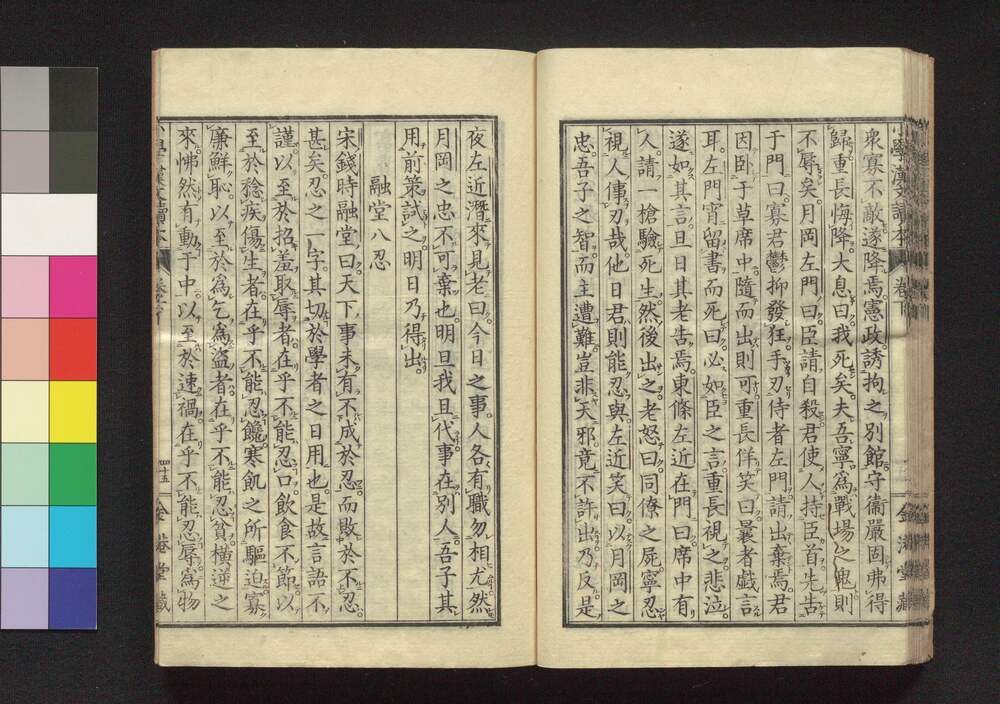 小學漢文讀本
卷下
金港堂藏
衆寡不敵遂降焉憲政誘拘之別館守衞嚴固弗得
歸重長悔降大息曰我死矣夫吾寧爲戰場之鬼則
不辱矣月岡左門曰臣請自殺君使人持臣首先告
于門曰寡君鬱抑發狂手刃侍者左門請出棄焉君
因臥于草席中隨而出則可重長佯笑曰曩者戲言
耳左門宵留書而死曰必如臣之言重長視之悲泣
遂如其言旦日其老告焉東條左近在門曰席中有
人請一槍驗死生然後出之老怒曰同僚之屍寧忍
視人倳刃哉他日君則能忍與左近笑曰以月岡之
忠吾子之智而主遭難豈非天邪竟不許出乃反是
夜左近潛來見老曰今日之事人各有職勿相尤然
月岡之忠不可棄也明旦我且代事在別人吾子其
用前策試之明日乃得出。
融堂八忍
宋錢時融堂曰天下事未有不成於忍而敗於不忍。
甚矣忍之一字其切於學者之日用也是故言語不
謹以至於招羞取辱者在乎不能忍口飮食不節以
至於稔疾傷生者在乎不能忍饞寒飢之所驅迫寡
廉鮮恥以至於爲乞爲盜者在乎不能忍貧橫逆之
來怫然有動于中以至於速禍在乎不能忍辱爲物
小學漢文讀本
四十五
金港堂藏